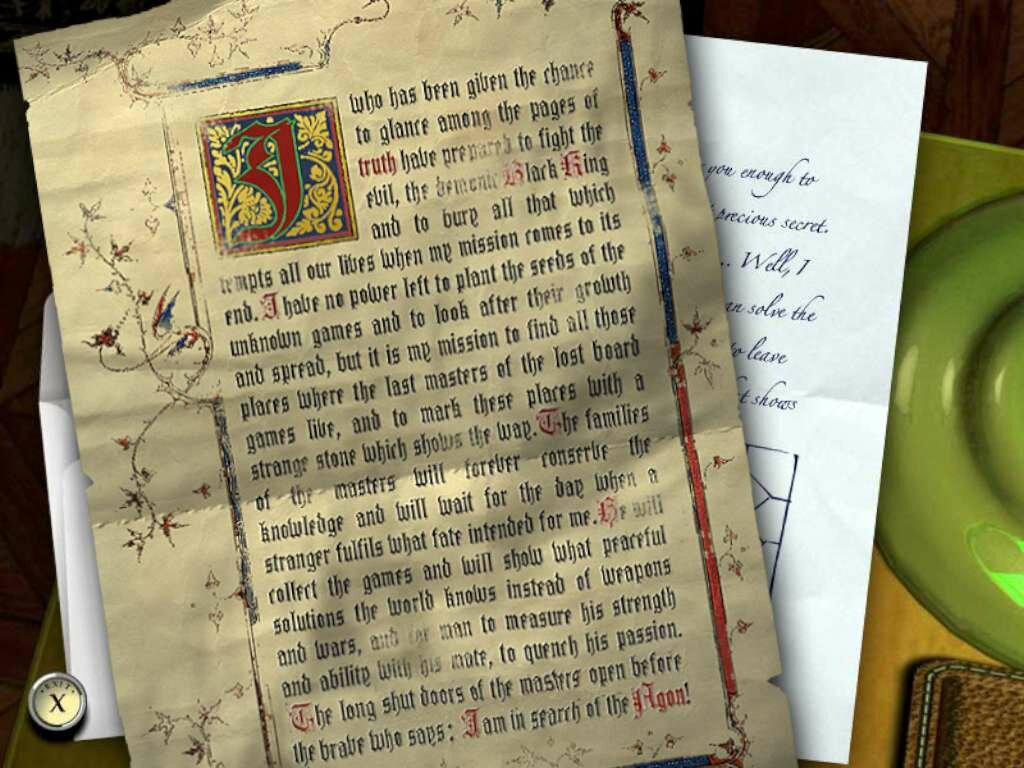 I who has been given the chance
to glance among the pages of
truth have prepared to fight the
evil, the demonic Black King
and to bury all that which
tempts all our lives when my mission comes to its
end. I have no power left to plant the seeds of the
unknown games and to look after their growth
and spread, but it is my mission to find all those
places where the last masters of the lost board
games live, and to mark these places with a
strange stone which shows the way. The families
of the masters will forever conserve the
knowledge and will wait for the day when a
stranger fulfils what fate intended for me. He will
collect the games and will show what peaceful
solutions the world knows instead of weapons
and wars, and for man to measure his strength
and ability with his mate, to quench his passion.
The long shut doors of the masters open before
the brave who says: I am in search of the Agon!
you enough to
precious secret.
... Well, I
an solve the
to leave
t shows
EXIT
X